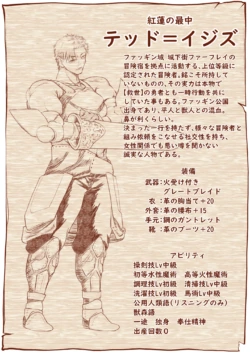 紅蓮の最中
テッド＝イジズ
ファッギン域 城下街ファーフレイの
冒険宿を拠点に活動する、上位等級に
認定された冒険者。銘こそ所持して
いないものの、その実力は本物で
【救世】の勇者とも一時行動を共に
していた事もある。ファッギン公園
出身であり、平人と獣人との混血。
鼻が利くらしい。
決まった一行を持たず、様々な冒険者と
組み依頼をこなせる社交性を持つ。
女性関係でも悪い噂を聞かない
誠実な人物である。
装備
武器:火受け付き
グレートブレイド
衣:革の胸当て+20
外套:革の腰布+15
手元:鋼のガントレット
靴:革のブーツ+20
アビリティ
操剣技Lv中級
初等水性魔術 高等火性魔術
調理技Lv初級 清掃技Lv中級
洗濯技Lv初級 馬術Lv中級
公用人類語(リスニングのみ)
獣森語
一途 独身 奉仕精神
出産回数0